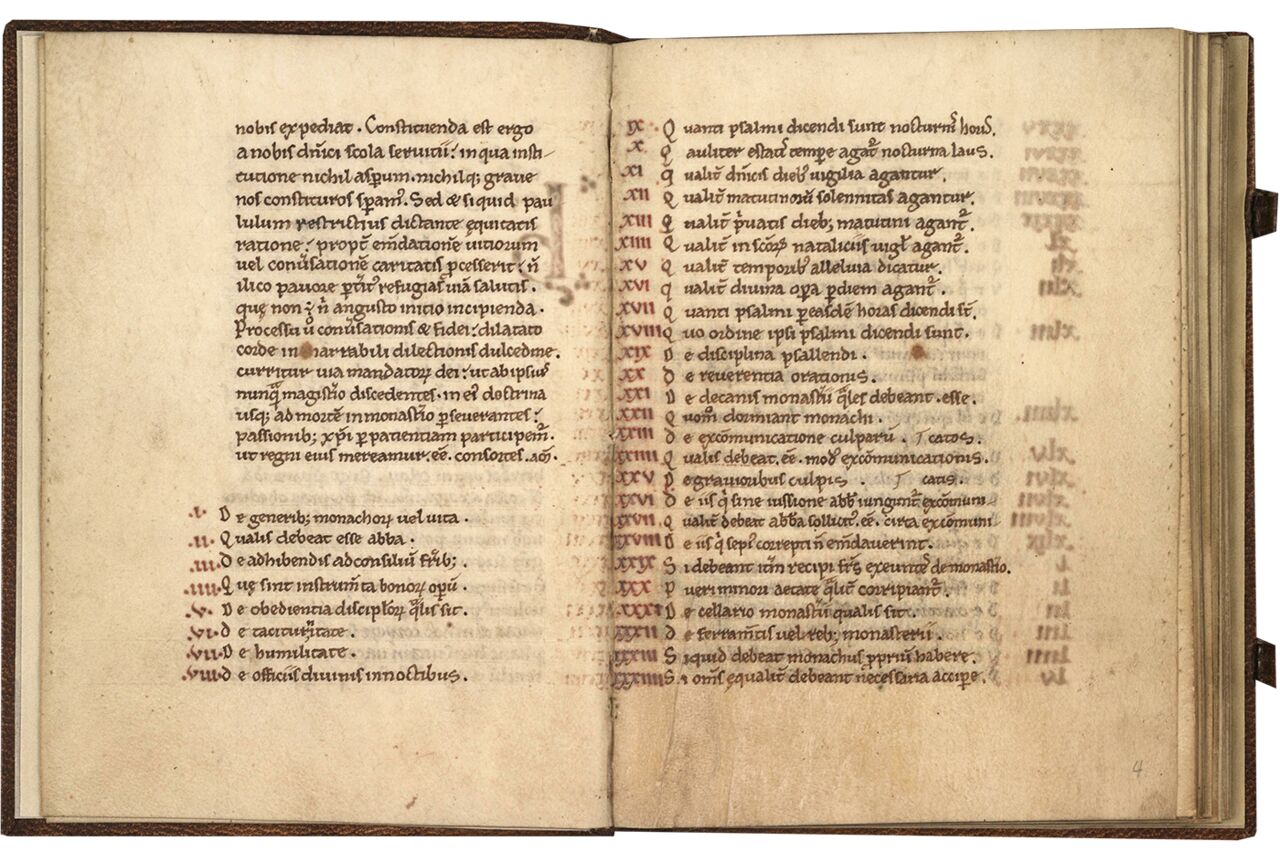 nobis expediat. Constituenda est ergo
a nobis dn̄ici scola seruitii: in qua insti-
tutione nichil asꝑum. nichilq; graue
nos constituros sꝑam᷒. Sed & si quid pau
lulum restrictius dictante ęquitatis
ratione: propt̄ em̄datione uitiorum
uel conūsationē caritatis ꝓcesserit: n̄
ilico pauore ꝑt̄rit᷒ refugias uiā salutis.
quę non ÷ n̄ angusto initio incipienda.
Processu ū conūsationis & fidei: dilatato
corde inenarrabili dilectionis dulcedine.
curritur uia mandatoꝝ dei: ut ab ipsius
nunquā magistrio discedentes. in ei᷒ doctrina
usq; ad mortē in monast̄io ꝑseuerantes:
passionib; xp̄i ꝑ patientiam participem᷒.
ut regni eius mereamur. ee̅. consortes. am̄.
.i. De generib; monachoꝝ uel uita.
.ii. Qualis debeat esse abba.
.iii. De adhibendis ad consiliū fr̄ib;.
.iiii. Que sint instrum̄ta bonoꝝ opū.
.v. De obedientia disciploꝝ q̄lis sit.
.vi. De taciturnitate.
.vii. De humilitate.
.viii. De officiis diuinis in noctibus.
ix. Quanti psalmi dicendi sunt nocturnis horis.
x. Qualiter estatis tempore agat᷒ nocturna laus.
xi Qualit̄ dn̄icis dieb᷒ uigilia agantur.
xii Qualit̄ matutinorū solennitas agantur.
xiii Qualit̄ pͥuatis dieb; matutini agant᷒.
xiiii Qualit̄ in sc̄oꝝ nataliciis uigl̄ agant᷒.
xv Qualit̄ temporib᷒ alleluia dicatur.
xvi Qualit̄ diuina oꝑa ꝑ diem agant᷒.
xvii Quanti psalmi ꝑ easdē horas dicendi st̄.
xviii Quo ordine ipsi psalmi dicendi sunt.
xix De disciplina psallendi.
xx De reuerentia orationis.
xxi De decanis monast̄ii q̄les debeant. esse.
xxii Quom̊ dormiant monachi.
xxiii De excōmunicatione culparū. catos.
xxiiii Qualis debeat. ee̅. mod᷒ excōmunicationis.
xxv De grauioribus culpis. catis.
xxvi De iis qͥ sine iussione abb̄ iungunt᷒ excōmuni
xxvii Qualit̄ debeat abba sollicit᷒. ee̅. circa excōmuni
xxviii De iis qͥ sepi᷒ correpti n̄ em̄dauerint.
xxix Si debeant it̄m recipi fr̄s exeuntes de monast̄io.
xxx Pueri minori aetate q̄lit̄ corripiant᷒.
xxxi De cellario monast̄ii qualis sit.
xxxii De ferram̄tis uel reb; monasterii.
xxxiii Si quid debeat monachus ꝓpriū habere.
xxxiiii Si om̄s ęqualit̄ debeant necessaria acciꝑe.
4